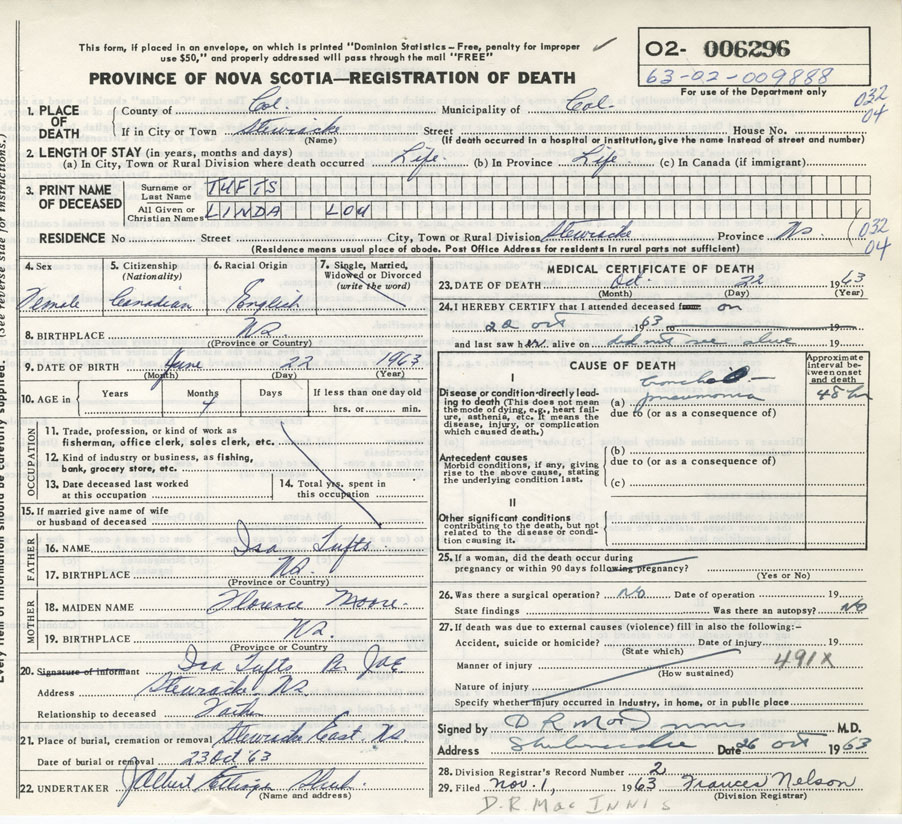 This form, if placed in an envelope, on which is printed "Dominion Statistics - Free, penalty for improper
use $50," and properly addressed will pass through the mail "FREE"
PROVINCE OF NOVA SCOTIA—REGISTRATION OF DEATH
O2- 006296
63-02-009888
For use of the Department only
032
04
1. PLACE OF DEATH
County of Col. Municipality of Col.
If in City or Town Stewiacke Street House No.
(Name) (If death occurred in a hospital or institution, give the name instead of street and number)
2. LENGTH OF STAY (in years, months and days)
(a) In City, Town or Rural Division where death occurred Life. (b) In Province Life (c) In Canada (if immigrant)
3. PRINT NAME OF DECEASED
Surname or Last Name TUFTS
All Given or Christian Names LINDA LOU
RESIDENCE No Street City, Town or Rural Division Stewiacke Province Ns.
032
04
(Residence means usual place of abode. Post Office Address for residents in rural parts not sufficient)
4. Sex
5. Citizenship (Nationality)
6. Racial Origin
7. Single, Married, Widowed or Divorced (write the word)
Female Canadian English
8. BIRTHPLACE Ns.
(Province or Country)
9. DATE OF BIRTH June 22 1963
(Month) (Day) (Year)
10. AGE in Years Months Days If less than one day old
4 hrs. or min.
OCCUPATION
11. Trade, profession, or kind of work as fisherman, office clerk, sales clerk, etc.
12. Kind of industry or business, as fishing, bank, grocery store, etc.
13. Date deceased last worked at this occupation
14. Total yrs. spent in this occupation
15. If married give name of wife or husband of deceased
FATHER
16. NAME Isa Tufts.
17. BIRTHPLACE Ns.
(Province or Country)
MOTHER
18. MAIDEN NAME Florence Moore.
19. BIRTHPLACE Ns.
(Province or Country)
20. Signature of informant Isa Tufts Per JAE
Address Stewiacke Ns
Relationship to deceased Father
21. Place of burial, cremation or removal Stewiacke East. Ns
Date of burial or removal 23 Oct '63
22. UNDERTAKER J Albert Ettinger Shub.
(Name and address)
MEDICAL CERTIFICATE OF DEATH
23. DATE OF DEATH Oct. 22 1963
(Month) (Day) (Year)
24. I HEREBY CERTIFY that I attended deceased from on
22 oct 1963 to 19
and last saw her alive on did not see alive 19
CAUSE OF DEATH
Approximate interval between onset and death
I
Disease or condition directly leading to death (This does not mean the mode of dying, e.g., heart failure, asthenia, etc. It means the disease, injury, or complication which caused death.)
(a) pneumonia 48 hr
due to (or as a consequence of)
Antecedent causes
Morbid conditions, if any, giving rise to the above cause, stating the underlying condition last.
(b)
due to (or as a consequence of)
(c)
II
Other significant conditions contributing to the death, but not related to the disease or condition causing it.
25. If a woman, did the death occur during pregnancy or within 90 days following pregnancy?
(Yes or No)
26. Was there a surgical operation? NO Date of operation 19
State findings Was there an autopsy? NO
27. If death was due to external causes (violence) fill in also the following:-
Accident, suicide or homicide? Date of injury 19
(State which)
Manner of injury 491X
(How sustained)
Nature of injury
Specify whether injury occurred in industry, in home, or in public place
Signed by D R MacInnis M.D.
Address Shubenacadie Date 26 Oct 1963
28. Division Registrar's Record Number 2
29. Filed Nov. 1, 1963 Frances Nelson
(Division Registrar)
D.R. MAC INNIS